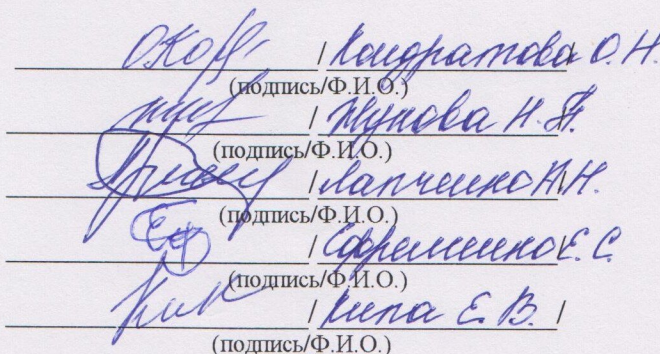 / Кондратова О.Н.
(подпись/Ф.И.О.)
/ Жукова Н.П.
(подпись/Ф.И.О.)
/ Лапченко Н.Н.
(подпись/Ф.И.О.)
/ Ефременко Е.С.
(подпись/Ф.И.О.)
/ Кипа Е.В. /
(подпись/Ф.И.О.)